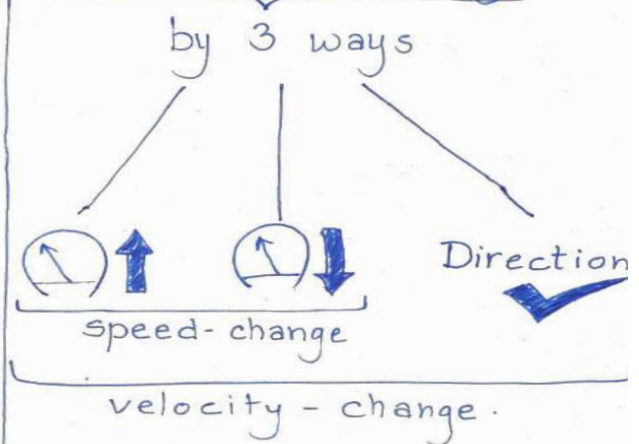 by 3 ways
Direction
speed-change
velocity - change.